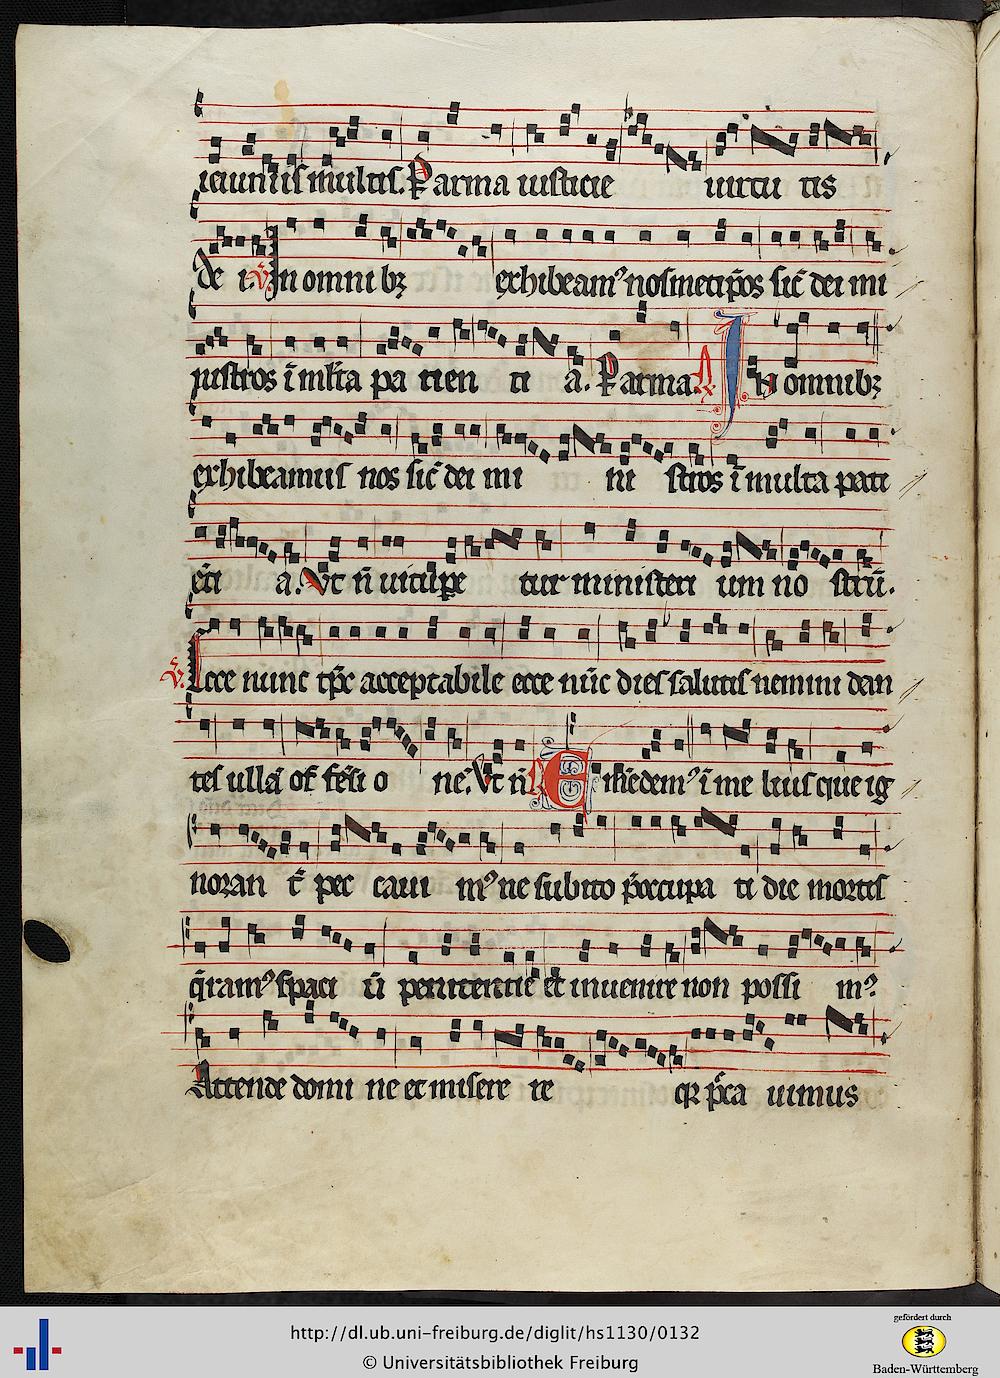 ieiuniis multis. Per arma iusticie uirtu tis
de i. V. In omnibꝫ exhibeamꝰ nosmetip̄os sic̄ dei mi
nistros ī ml̄ta pa tien ti a. Per arma. In omnibꝫ
exhibeamus nos sic̄ dei mi ni stros ī multa pati
en̄ti a. Vt n̄ uitupe tur ministeri um no strū.
V. Ecce nunc tp̄c acceptabile ecce nūc dies salutis nemini dan
tes ullā off̄ ne. Vt n̄ Em̄edemꝰ ī me lius que ig
noran t̄ pec caui mꝰ ne subito p̄occupa ti die mortis
q̄ramꝰ spaci ū penitentie et inuenire non possi mꝰ
Attende domi ne et misere re qꝛ p̄ca uimus
http://dl.ub.uni-freiburg.de/diglit/hs1130/0132
© Universitätsbibliothek Freiburg
gefördert durch
Baden-Württemberg